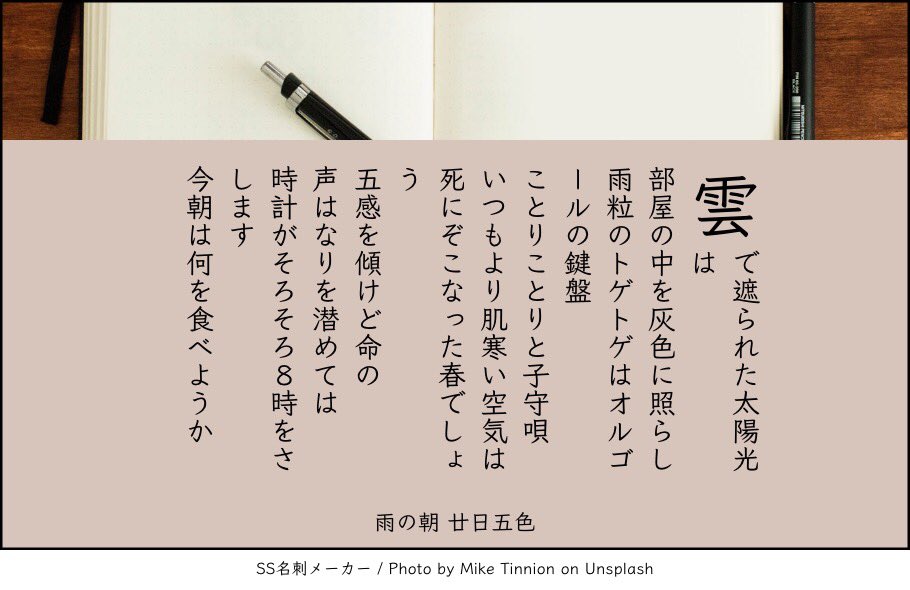 雲で遮られた太陽光
は
部屋の中を灰色に照らし
雨粒のトゲトゲはオルゴ
ールの鍵盤
ことりことりと子守唄
いつもより肌寒い空気は
死にぞこなった春でしょ
う
五感を傾けど命の
声はなりを潜めては
時計がそろそろ8時をさ
します
今朝は何を食べようか
雨の朝 廿日五色
SS名刺メーカー / Photo by Mike Tinnion on Unsplash